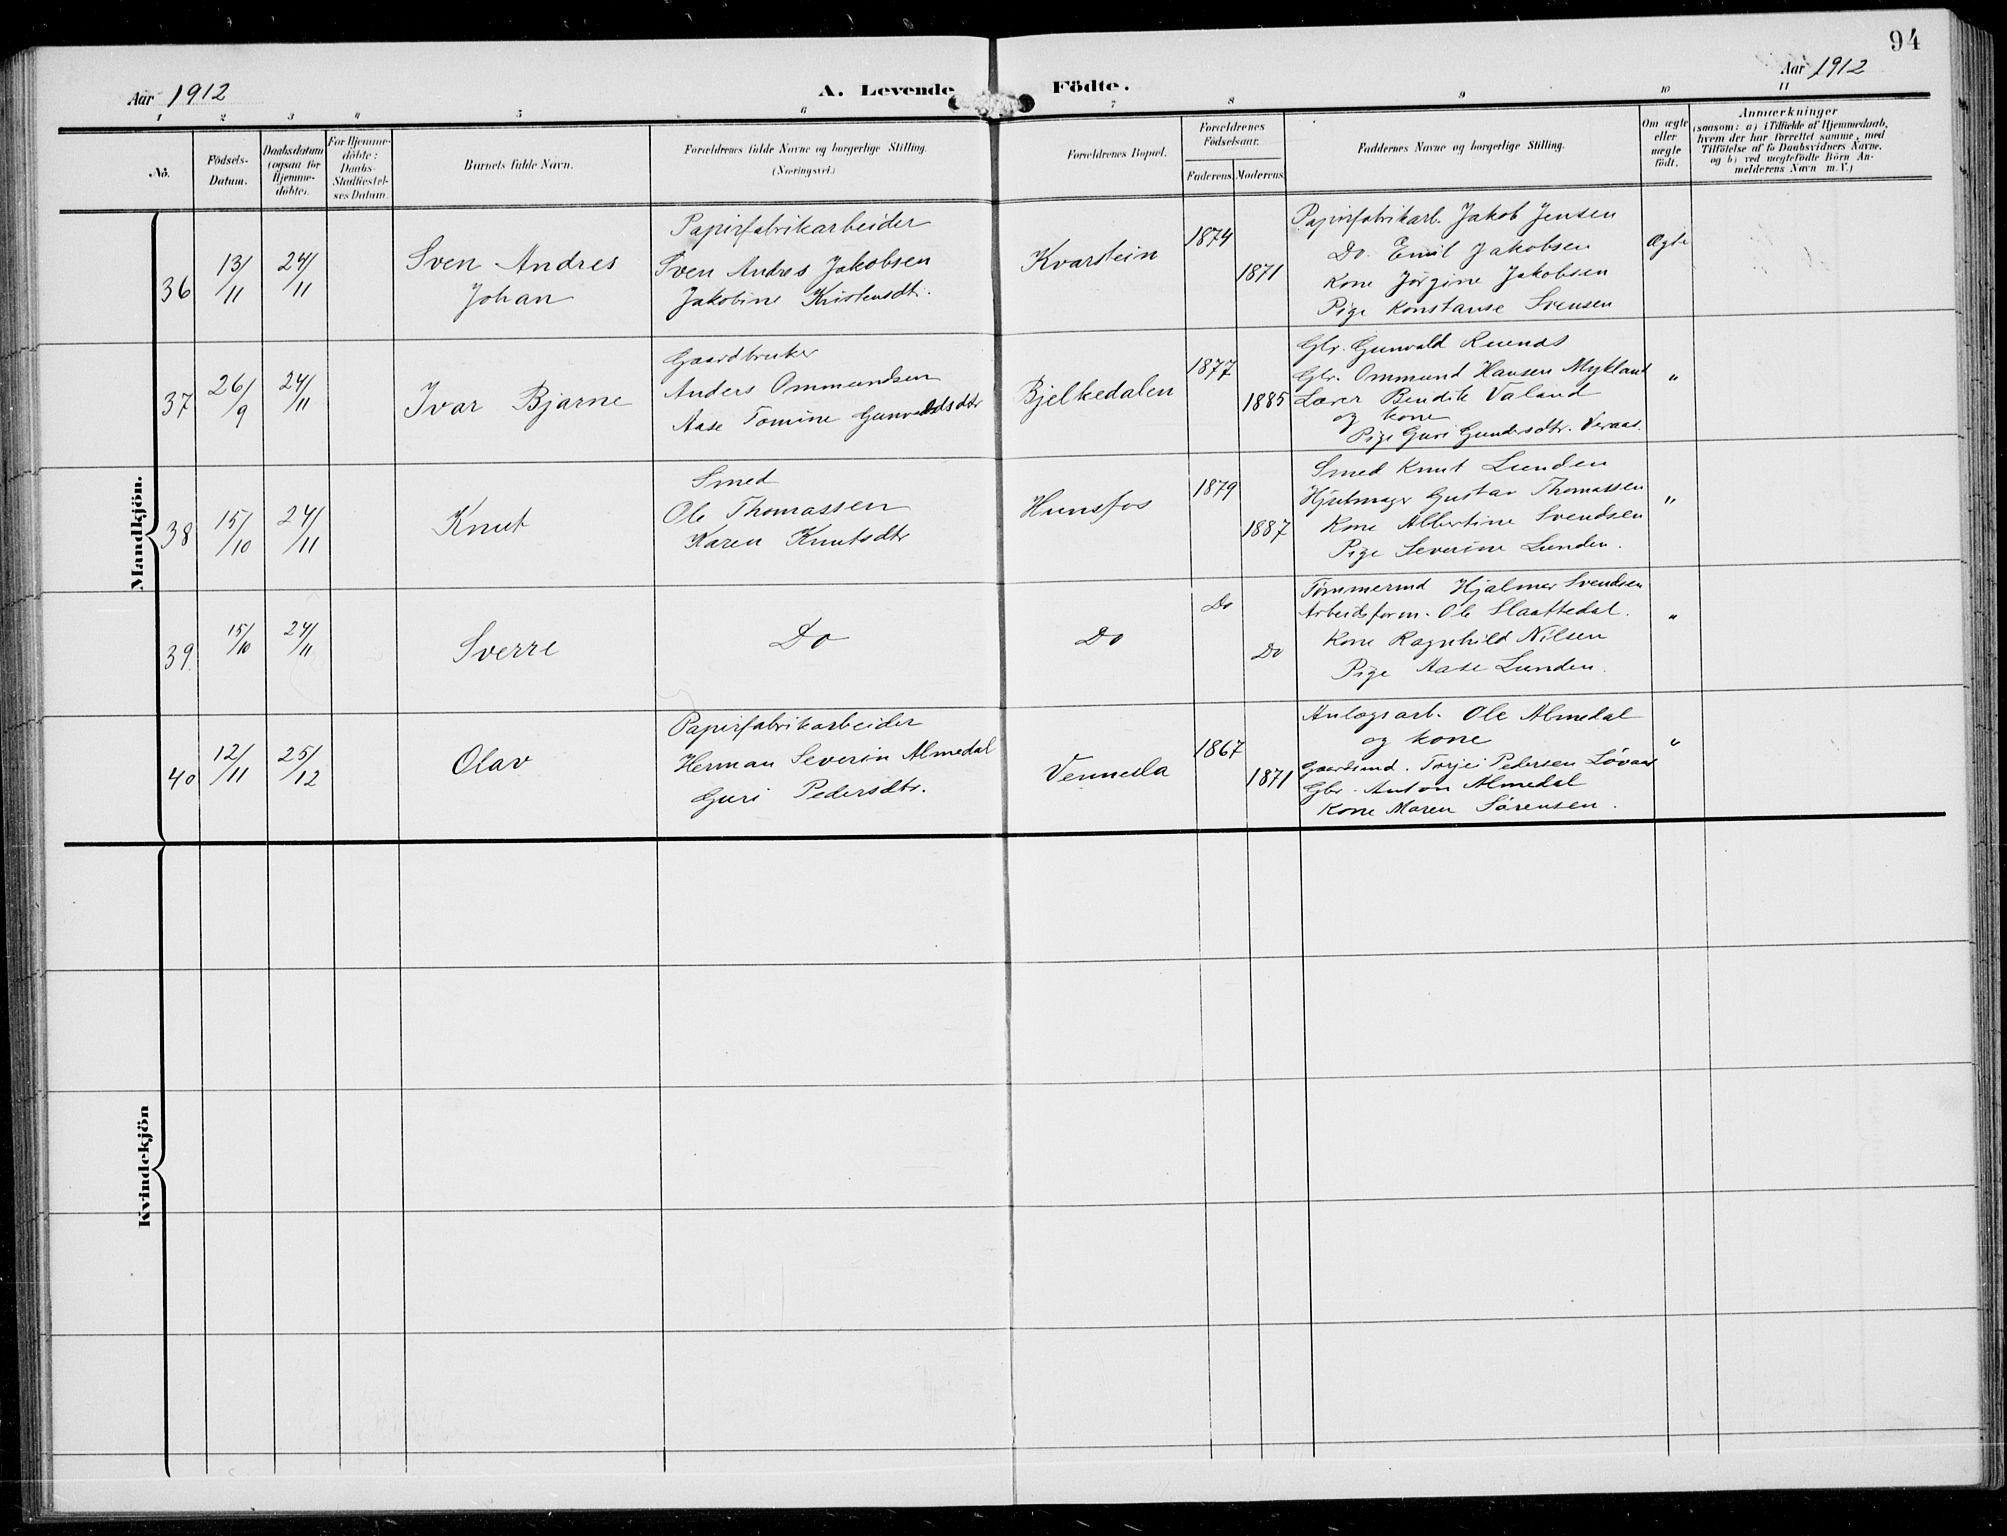 94
Aar 1912
A. Levende Födte.
Aar 1912
1 2 3 4 5 6 7 8 9 10 11
No.
Födsels-Datum.
Daabsdatum (ogsaa for Hjemmedöbte).
For Hjemmedöbte: Daabs Stadfæstelses Datum.
Barnets fulde Navn.
Forældrenes fulde Navne og borgerlige Stilling.
(Næringsvei.)
Forældrenes Bopæl.
Forældrenes Födselsaar.
Faderens. Moderens.
Faddernes Navne og borgerlige Stilling.
Om ægte eller uægte födt.
Anmærkninger
(saasom: a) i Tilfælde af Hjemmedaab,
hvem der har forrettet samme, med
Tilföielse af to Daabsvidners Navne.
og b) ved uægtefödte Börn An-
melderens Navn m. V.)
Mandkjön.
36
13/11
24/11
Sven Andres
Johan
Papirfabrikarbeider
Sven Andres Jakobsen
Jakobine Kristensdtr.
Kvarstein
1874
1871
Papirfabrikarb. Jakob Jensen
Do. Emil Jakobsen
Kone Jørgine Jakobsen
Pige Konstanse Svensen
Ægte
37
26/9
24/11
Ivar Bjarne
Gaardbruker
Anders Ommundsen
Aase Tomine Gunvaldsdtr
Bjelkedalen
1877
1885
Gbr. Gunvald
Gbr. Ommund Hansen Mykland
Lærer Bendik Valand
og kone
Pige Guri Gundersdtr. Veraas.
"
38
15/10
24/11
Knut
Smed
Ole Thomassen
Karen Knutsdtr
Hunsfos
1879
1887
Smed Knut Lunden
Hjulmager Gustav Thomassen
Kone Albertine Svendsen
Pige Severine Lunden.
"
39
15/10
24/11
Sverre
Do
Do
Do
Do
Tømmermd Hjalmar Svendsen
Arbeidsform. Ole Slaattedal.
Kone Ragnhild Nilsen
Pige Aase Lunden.
"
40
12/11
25/12
Olav
Papirfabrikarbeider
Herman Severin Almedal
Guri Pedersdtr.
Vennesla
1867
1871
Anlægsarb. Ole Almedal
og kone
Gaardmd. Torjei Pedersen Løvaas
Gbr. Anton Almedal
Kone Maren Sørensen.
"
Kvindekjön